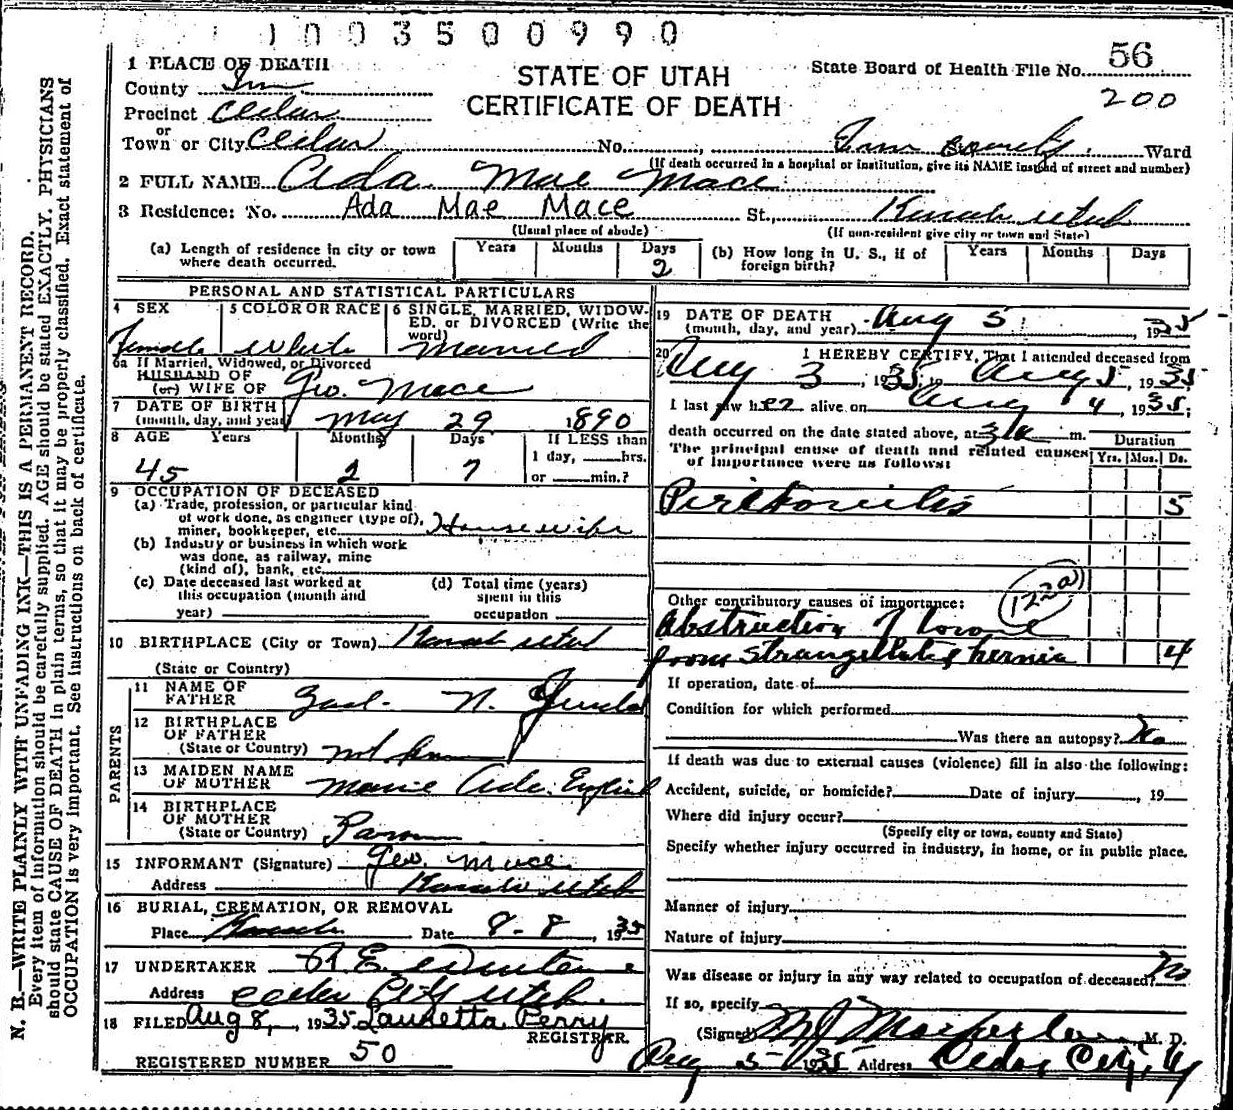 1003500990
1 PLACE OF DEATH
STATE OF UTAH
CERTIFICATE OF DEATH
State Board of Health File No. 56
200
County Iron
Precinct Cedar
or
Town or City Cedar No. , Iron County Ward
(If death occurred in a hospital or institution, give its NAME instead of street and number)
2 FULL NAME Ada Mae Mace
3 Residence: No. Ada Mae Mace St., Kanab Utah
(Usual place of abode) (If non-resident give city or town and State)
(a) Length of residence in city or town where death occurred. Years Months Days 2
(b) How long in U. S., if of foreign birth? Years Months Days
PERSONAL AND STATISTICAL PARTICULARS
4 SEX Female
5 COLOR OR RACE White
6 SINGLE, MARRIED, WIDOWED, or DIVORCED (Write the word) Married
6a If Married, Widowed, or Divorced
HUSBAND OF
(or) WIFE OF Geo. Mace
7 DATE OF BIRTH
(month, day, and year) May 29 1890
8 AGE Years 45 Months 2 Days 7 If LESS than 1 day, hrs. or min.?
9 OCCUPATION OF DECEASED
(a) Trade, profession, or particular kind of work done, as engineer (type of), miner, bookkeeper, etc. Housewife
(b) Industry or business in which work was done, as railway, mine (kind of), bank, etc.
(c) Date deceased last worked at this occupation (month and year)
(d) Total time (years) spent in this occupation
10 BIRTHPLACE (City or Town) Kanab Utah
(State or Country)
PARENTS
11 NAME OF FATHER N.
12 BIRTHPLACE OF FATHER
(State or Country)
13 MAIDEN NAME OF MOTHER
14 BIRTHPLACE OF MOTHER
(State or Country)
15 INFORMANT (Signature) Geo. Mace
Address Kanab Utah
16 BURIAL, CREMATION, OR REMOVAL
Place Kanab Date 8-8, 1935
17 UNDERTAKER
Address Cedar City Utah.
18 FILED Aug 8, 1935 Lauretta Perry
REGISTRAR.
REGISTERED NUMBER 50
19 DATE OF DEATH
(month, day, and year) Aug 5, 1935
20 I HEREBY CERTIFY, That I attended deceased from
Aug 3, 1935, to Aug 5, 1935
I last saw her alive on Aug 4, 1935;
death occurred on the date stated above, at 3 a m.
The principal cause of death and related causes of importance were as follows:
Duration
Yrs. Mos. Ds.
Peritonitis 5
Other contributory causes of importance: 122a
Obstruction of bowel
from strangulated hernia 4
If operation, date of
Condition for which performed
Was there an autopsy? No
If death was due to external causes (violence) fill in also the following:
Accident, suicide, or homicide? Date of injury , 19
Where did injury occur?
(Specify city or town, county and State)
Specify whether injury occurred in industry, in home, or in public place.
Manner of injury
Nature of injury
Was disease or injury in any way related to occupation of deceased? No
If so, specify
(Signed) M. D.
Aug 5 1935 Address Cedar City, U
N. B.—WRITE PLAINLY WITH UNFADING INK—THIS IS A PERMANENT RECORD.
Every item of information should be carefully supplied. AGE should be stated EXACTLY. PHYSICIANS
should state CAUSE OF DEATH in plain terms, so that it may be properly classified. Exact statement of
OCCUPATION is very important. See instructions on back of certificate.